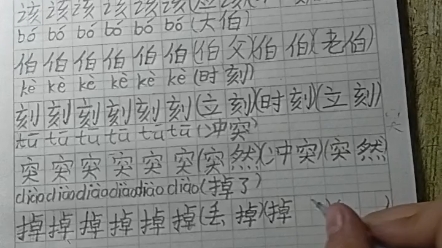 该该该该该该
bó bó bó bó bó bó(大伯)
伯伯伯伯伯伯(伯父)(伯伯)(老伯)
kè kè kè kè kè kè(时刻)
刻刻刻刻刻刻(立刻)(时刻)(立刻)
tū tū tū tū tū tū(冲突)
突突突突突突(突然)(冲突)(突然)
diào diào diào diào diào diào(掉了)
掉掉掉掉掉掉(丢掉)(掉 )